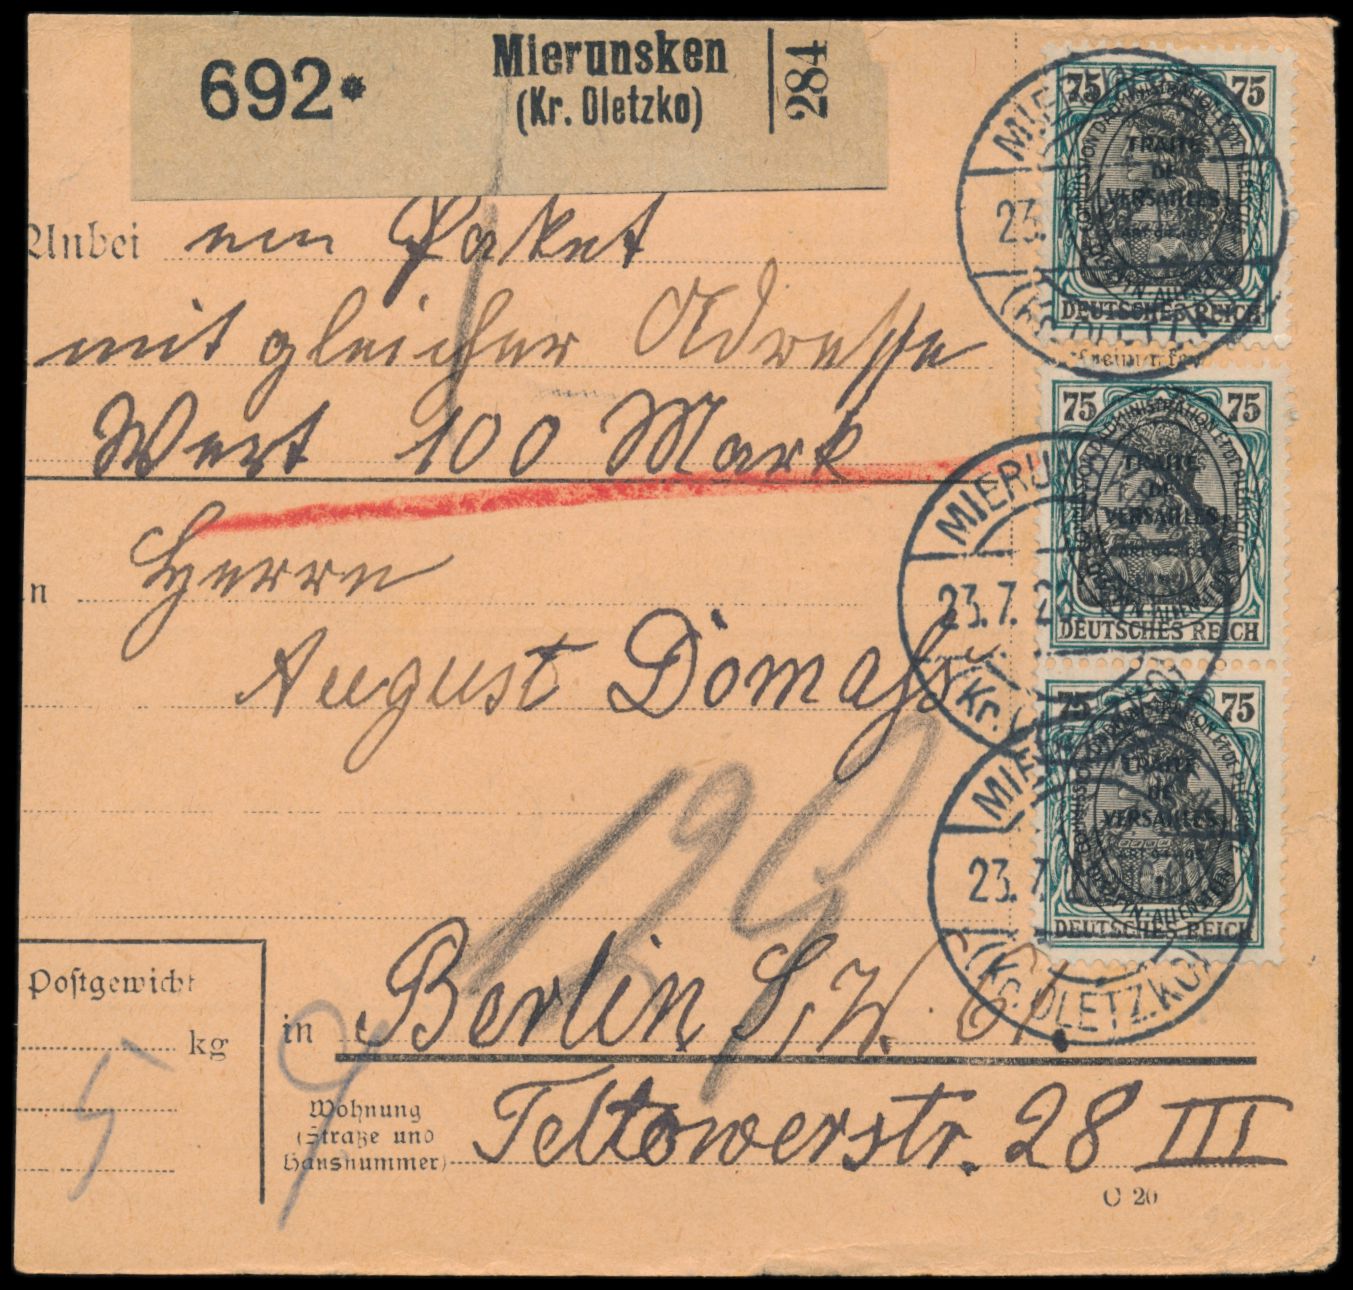 692*
Mierunsken
(Kr. Oletzko)
284
75 75
TRAITÉ
DE
VERSAILLES
DEUTSCHES REICH
Anbei ein Paket
mit gleicher Adresse
Wert 100 Mark
75 75
TRAITÉ
DE
VERSAILLES
DEUTSCHES REICH
MIERU
23.7.20
(Kr.
n Herrn
August Domaß
75 75
TRAITÉ
DE
VERSAILLES
DEUTSCHES REICH
23.7.
(Kr. OLETZKO)
Postgewicht
kg
5
in Berlin S.W. 61.
Wohnung
(Straße und
Hausnummer)
Teltowerstr. 28 III
C 20